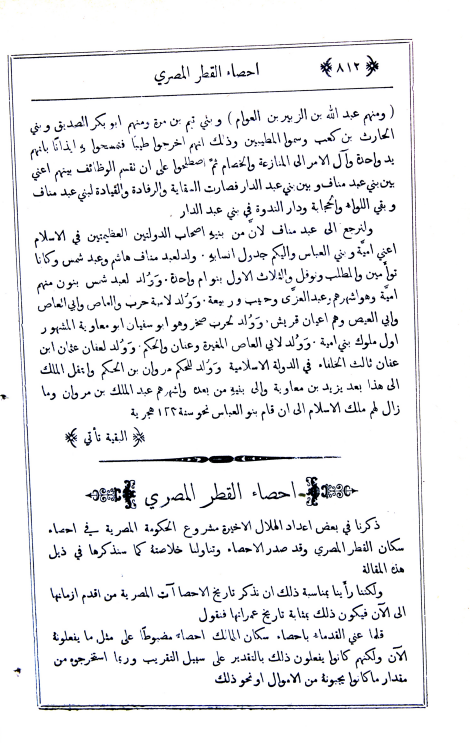 ﴿ ٨١٢ ﴾ احصاء القطر المصري
( ومنهم عبد الله بن الزبير بن العوام ) وبني تيم بن مرة ومنهم ابو بكر الصديق وبني
الحارث بن كعب وسموا المطيبين وذلك انهم اخرجوا طيبًا فتمسحوا بهِ ايذانًا بانهم
يد واحدة وآل الامر الى المنازعة والخصام ثم اصطلحوا على ان تقسم الوظائف بينهم اعني
بين بني عبد مناف وبين بني عبد الدار فصارت السقاية والرفادة والقيادة لبني عبد مناف
وبقي اللواء والحجابة ودار الندوة في بني عبد الدار
ولنرجع الى عبد مناف لانَّ من بنيهِ اصحاب الدولتين العظيمتين في الاسلام
اعني امية وبني العباس واليكم جدول انسابهِ . ولد لعبد مناف هاشم وعبد شمس وكانا
توأمين والمطلب ونوفل والثلاث الاول بنو ام واحدة . وَوُلد لعبد شمس بنون منهم
امية وهو اشهرهم وعبد العزَّى وحبيب وربيعة . وَوُلد لامية حرب والعاص وابي العاص
وابي العيص وهم اعيان قريش . وَوُلد لحرب صخر وهو ابو سفيان ابو معاوية المشهور
اول ملوك بني امية . وَوُلد لابي العاص المغيرة وعفان والحكم . وَوُلد لعفان عثمان ابن
عفان ثالث الخلفاء في الدولة الاسلامية وَوُلد للحكم مروان بن الحكم وانتقل الملك
الى هذا بعد يزيد بن معاوية والى بنيهِ من بعده واشهرهم عبد الملك بن مروان وما
زال لهم ملك الاسلام الى ان قام بنو العباس نحو سنة ١٢٢ هجرية
﴿ البقية تأتي ﴾
احصاء القطر المصري
ذكرنا في بعض اعداد الهلال الاخيرة مشروع الحكومة المصرية في احصاء
سكان القطر المصري وقد صدر الاحصاء وتناولنا خلاصتهُ كما سنذكرها في ذيل
هذه المقالة
ولكننا رأينا بمناسبة ذلك ان نذكر تاريخ الاحصاآت المصرية من اقدم ازمانها
الى الآن فيكون ذلك بمثابة تاريخ عمرانها فنقول
قلما عني القدماء باحصاء سكان الممالك احصاءً مضبوطًا على مثل ما يفعلونهُ
الآن ولكنهم كانوا يفعلون ذلك بالتقدير على سبيل التقريب وربما استخرجوه من
مقدار ما كانوا يجبونهُ من الاموال او نحو ذلك